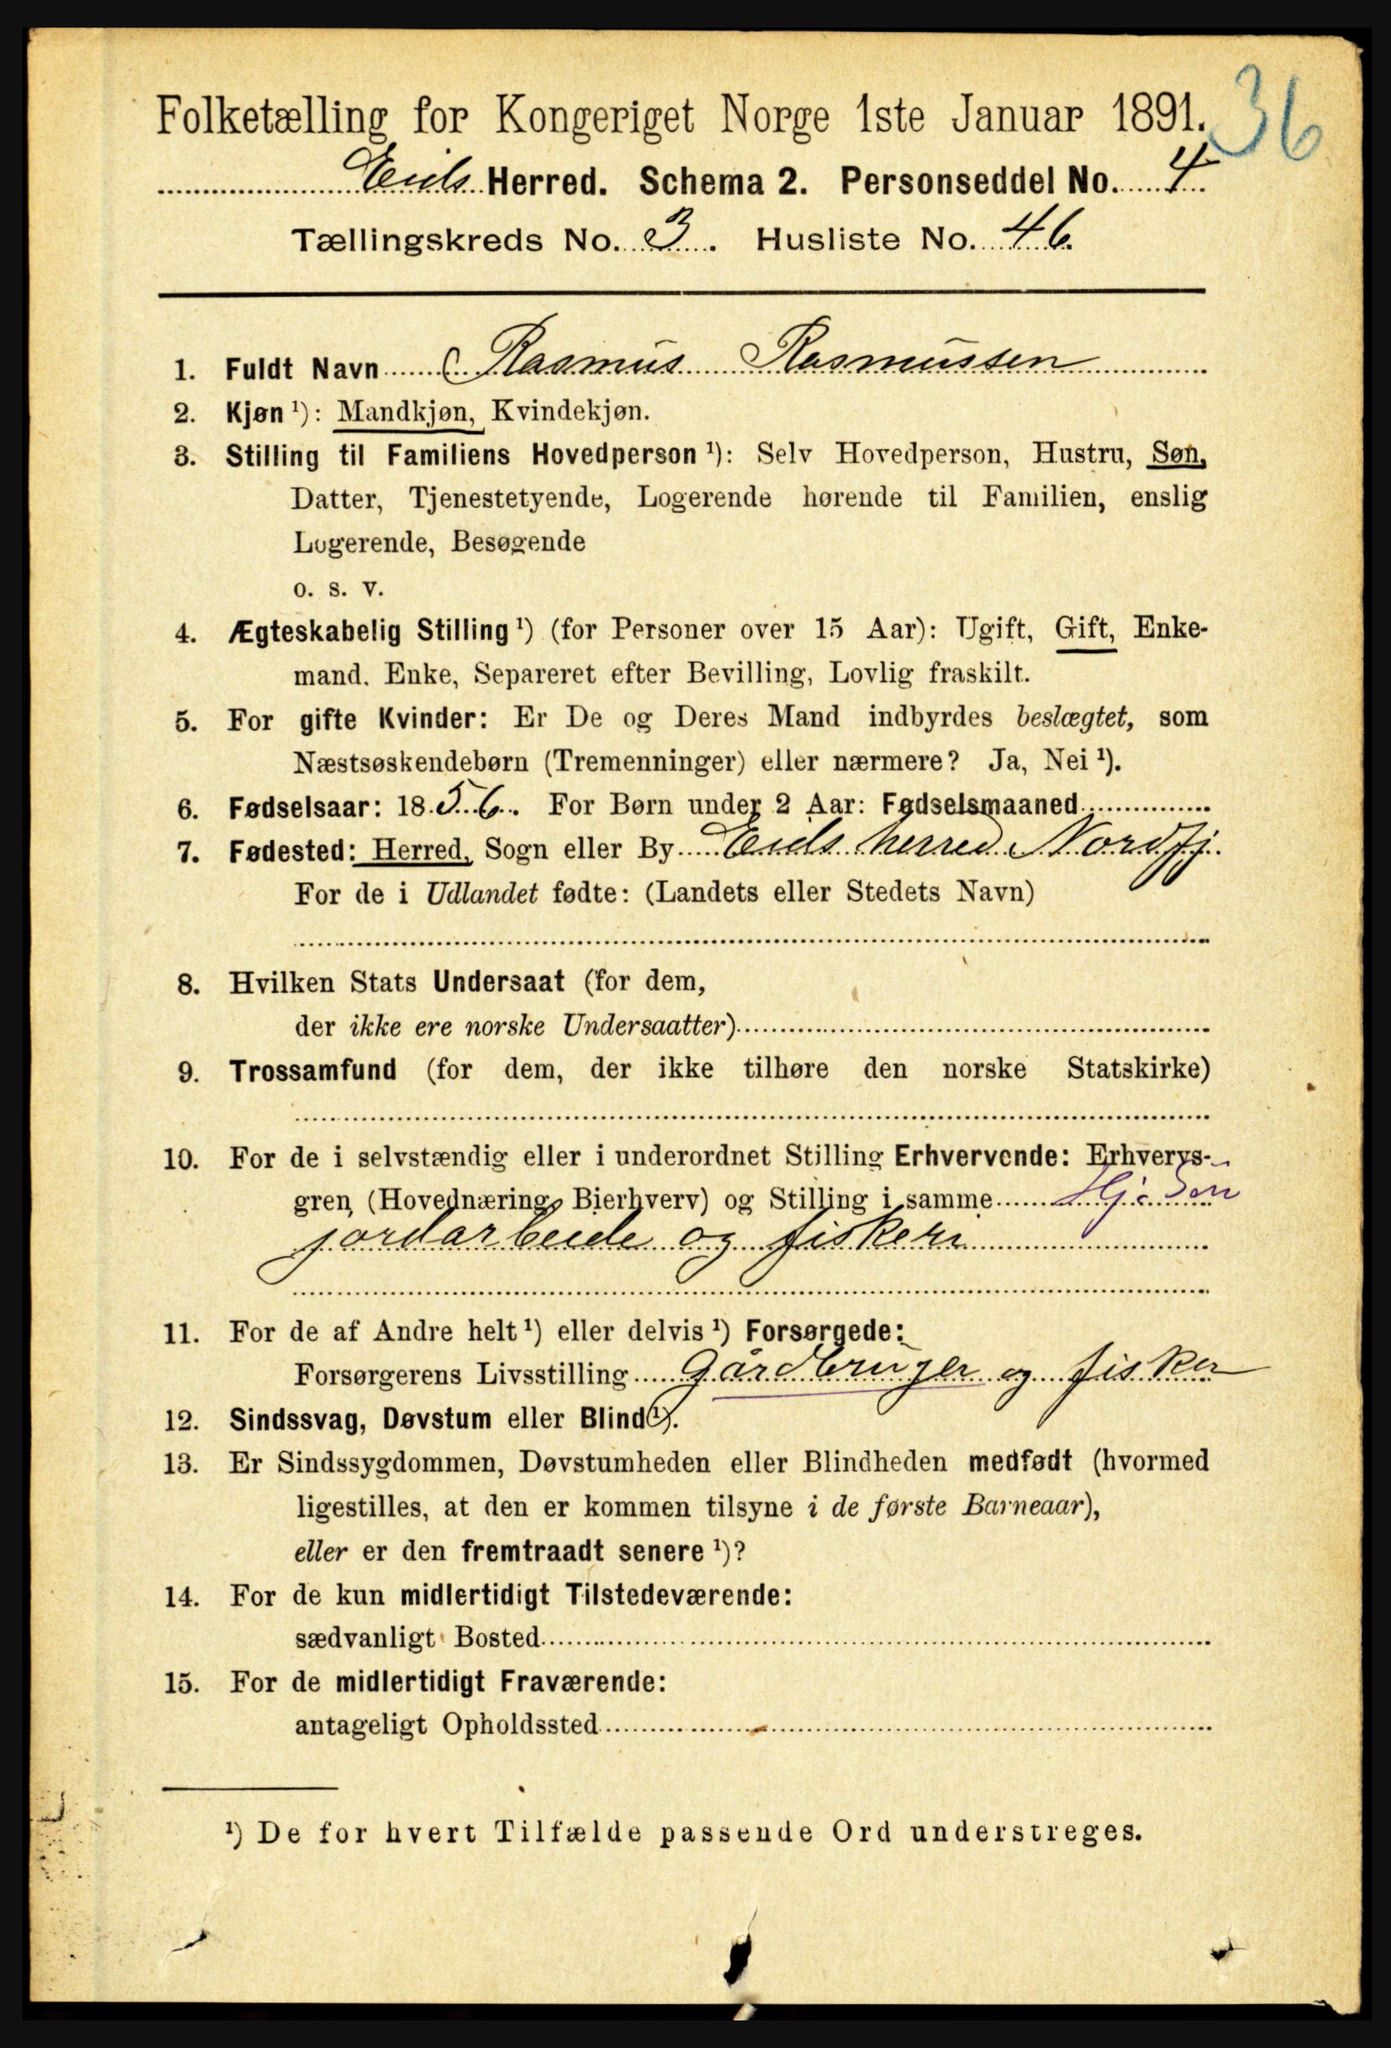 36
Folketælling for Kongeriget Norge 1ste Januar 1891.
Eids Herred. Schema 2. Personseddel No. 4
Tællingskreds No. 3. Husliste No. 46.
1. Fuldt Navn Rasmus Rasmussen
2. Kjøn ¹): Mandkjøn, Kvindekjøn.
3. Stilling til Familiens Hovedperson ¹): Selv Hovedperson, Hustru, Søn,
Datter, Tjenestetyende, Logerende hørende til Familien, enslig
Logerende, Besøgende
o. s. v.
4. Ægteskabelig Stilling ¹) (for Personer over 15 Aar): Ugift, Gift, Enke-
mand. Enke, Separeret efter Bevilling, Lovlig fraskilt.
5. For gifte Kvinder: Er De og Deres Mand indbyrdes beslægtet, som
Næstsøskendebørn (Tremenninger) eller nærmere? Ja, Nei ¹).
6. Fødselsaar: 1856. For Børn under 2 Aar: Fødselsmaaned
7. Fødested: Herred, Sogn eller By Eids herred Nordfj.
For de i Udlandet fødte: (Landets eller Stedets Navn)
8. Hvilken Stats Undersaat (for dem,
der ikke ere norske Undersaatter)
9. Trossamfund (for dem, der ikke tilhøre den norske Statskirke)
10. For de i selvstændig eller i underordnet Stilling Erhvervende: Erhvervs-
gren (Hovednæring, Bierhverv) og Stilling i samme Hj. Søn
jordarbeide og fiskeri
11. For de af Andre helt ¹) eller delvis ¹) Forsørgede:
Forsørgerens Livsstilling Gårdbruger og fisker
12. Sindssvag, Døvstum eller Blind ¹).
13. Er Sindssygdommen, Døvstumheden eller Blindheden medfødt (hvormed
ligestilles, at den er kommen tilsyne i de første Barneaar),
eller er den fremtraadt senere ¹)?
14. For de kun midlertidigt Tilstedeværende:
sædvanligt Bosted
15. For de midlertidigt Fraværende:
antageligt Opholdssted
¹) De for hvert Tilfælde passende Ord understreges.